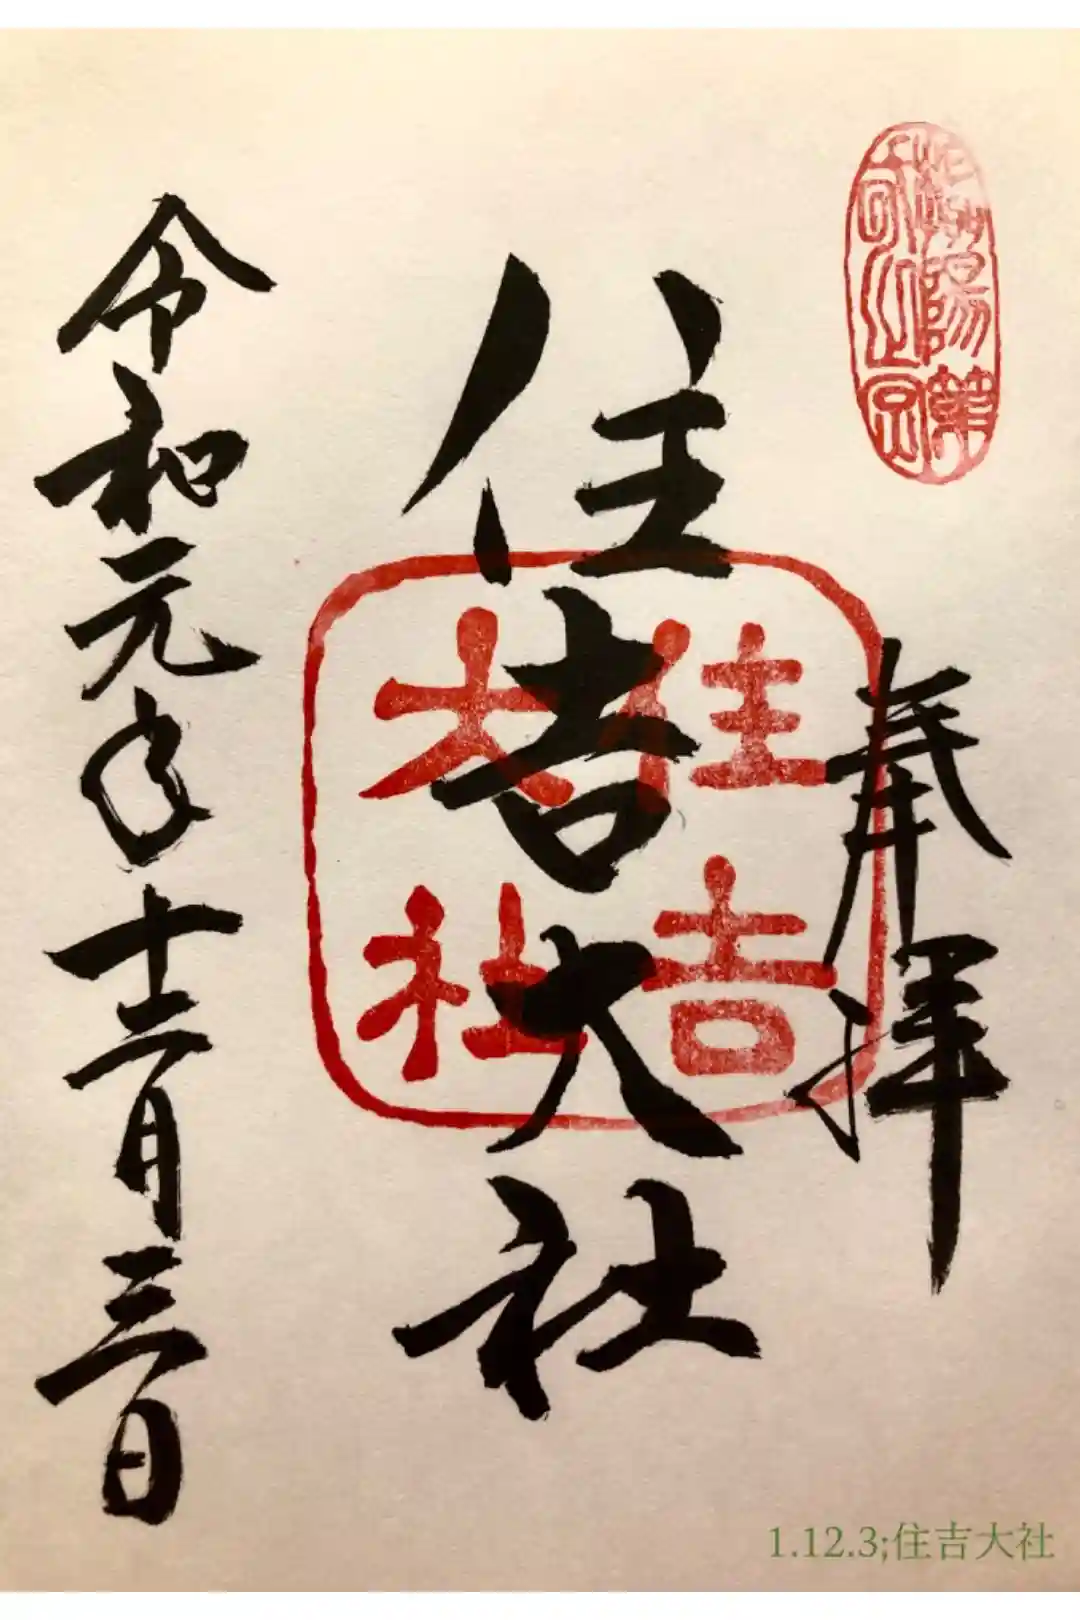 奉拝
住吉大社
住吉
大社
令和元年十二月三日
1.12.3;住吉大社